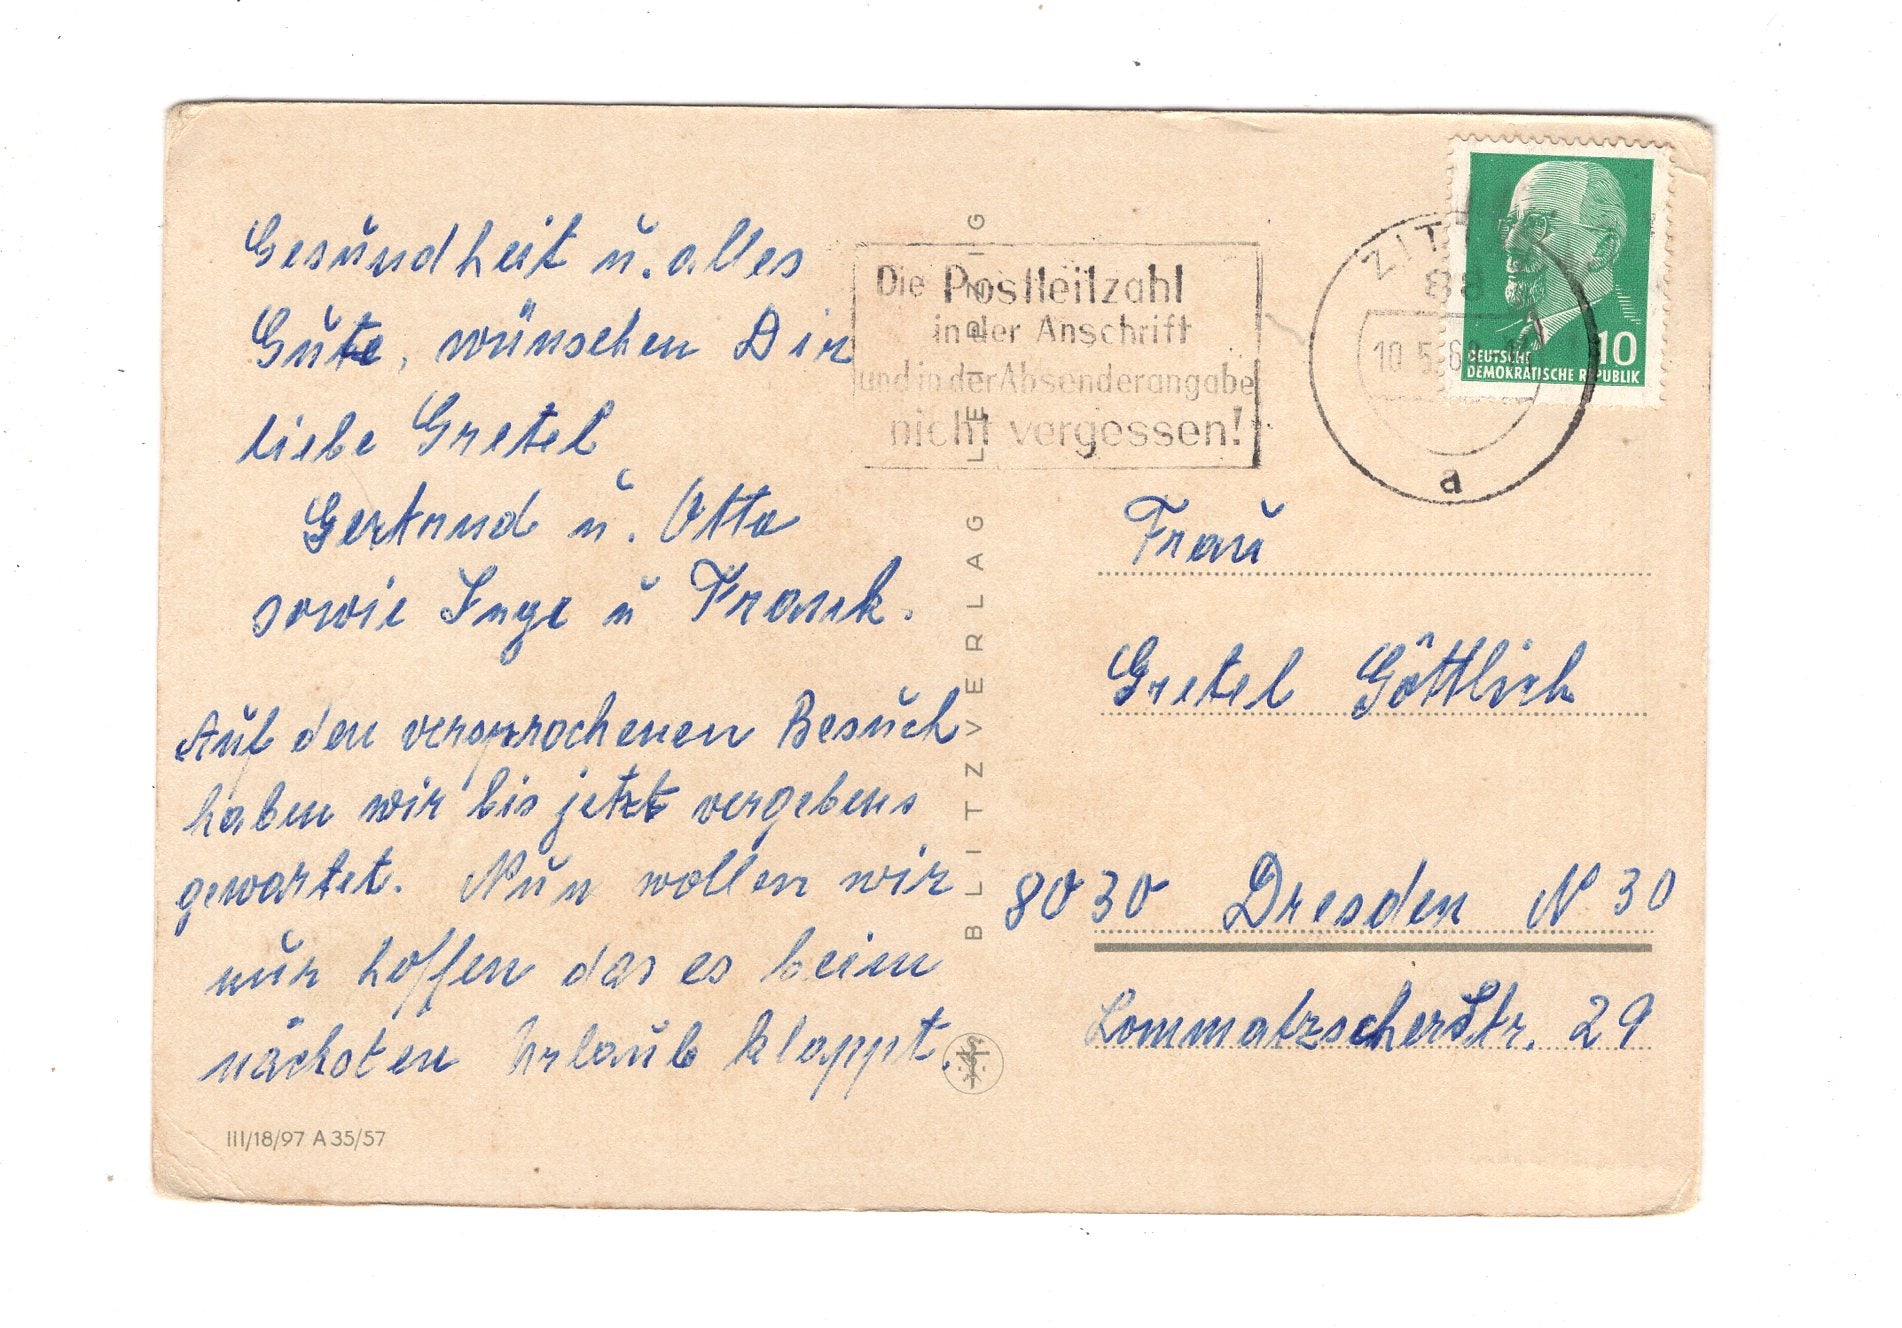 Gesundheit u. alles
Gute, wünschen Dir
liebe Gretel
Gertrud u. Otto
sowie Inge u Frank.
Auf den versprochenen Besuch
haben wir bis jetzt vergebens
gewartet. Nun wollen wir
nur hoffen das es beim
nächsten Urlaub klappt.
III/18/97 A 35/57
BLITZVERLAG LEIPZIG
Die Postleitzahl
in der Anschrift
und in der Absenderangabe
nicht vergessen!
88
10.5.6
a
10
DEUTSCHE
DEMOKRATISCHE REPUBLIK
Frau
Gretel Göttlich
8030 Dresden N 30
Lommatzscherstr. 29